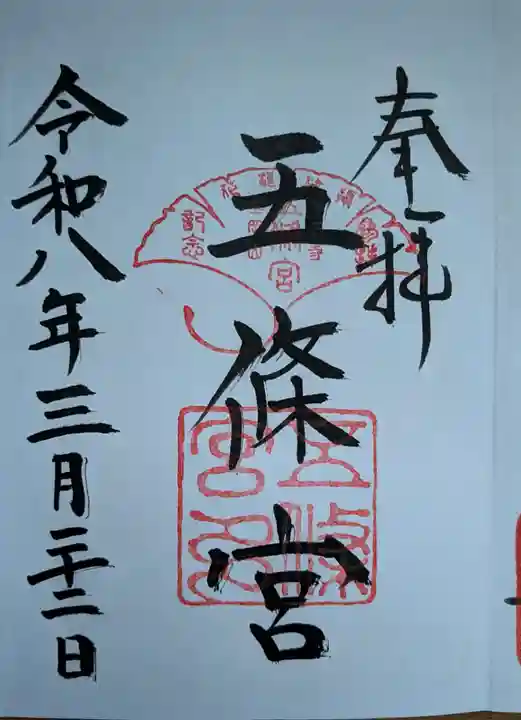 奉拝
五條宮
令和八年三月二十二日
記念
五條宮